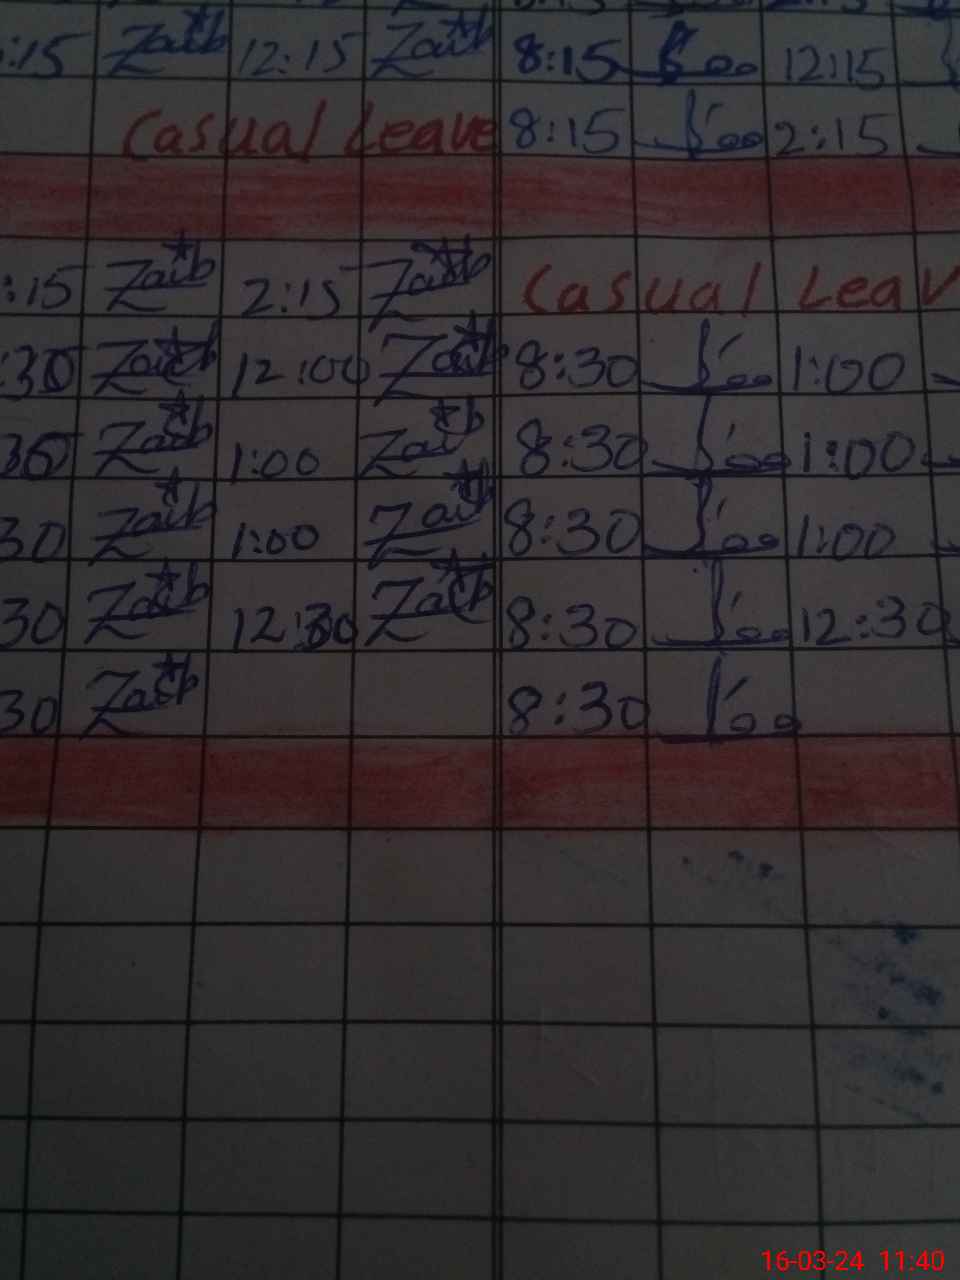 :15 Zaib 12:15 Zaib 8:15 12:15
Casual Leave 8:15 2:15
:15 Zaib 2:15 Zaib Casual Leav
:30 Zaib 12:00 Zaib 8:30 1:00
30 Zaib 1:00 Zaib 8:30 1:00
30 Zaib 1:00 Zaib 8:30 1:00
30 Zaib 12:30 Zaib 8:30 12:30
30 Zaib 8:30
16-03-24 11:40